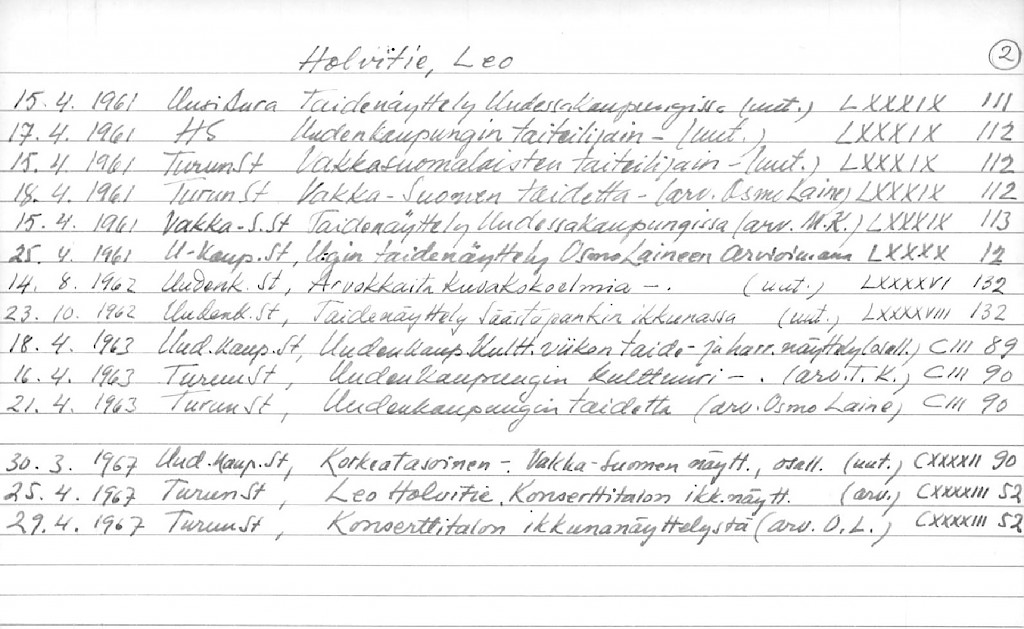 Holvitie, Leo 2
15. 4. 1961 Uusi Aura Taidenäyttely Uudessakaupungissa (uut.) LXXXIX 111
17. 4. 1961 HS Uudenkaupungin taiteilijain - (uut.) LXXXIX 112
15. 4. 1961 TurunSt Vakkasuomalaisten taiteilijain - (uut.) LXXXIX 112
18. 4. 1961 TurunSt Vakka-Suomen taidetta - (arv. Osmo Laine) LXXXIX 112
15. 4. 1961 Vakka-S.St Taidenäyttely Uudessakaupungissa (arv. M.K.) LXXXIX 113
25. 4. 1961 U-Kaup.St, U:gin taidenäyttely Osmo Laineen arvioimana LXXXX 12
14. 8. 1962 Uudenk.St, Arvokkaita kuvakokoelmia -. (uut.) LXXXXVI 132
23. 10. 1962 Uudenk.St, Taidenäyttely Säästöpankin ikkunassa (uut.) LXXXXVIII 132
18. 4. 1963 Uud.Kaup.St, Uudenkaup.Kultt.viikon taide- ja harr.näyttely (osall.) CIII 89
16. 4. 1963 TurunSt, Uudenkaupungin kulttuuri -. (arv. T. K.) CIII 90
21. 4. 1963 TurunSt, Uudenkaupungin taidetta (arv. Osmo Laine) CIII 90
30. 3. 1967 Uud.Kaup.St, Korkeatasoinen -. Vakka-Suomen näytt., osall. (uut.) CXXXXII 90
25. 4. 1967 TurunSt, Leo Holvitie, Konserttitalon ikk.näytt. (arv.) CXXXXIII 52
29. 4. 1967 TurunSt, Konserttitalon ikkunanäyttelystä (arv. O.L.) CXXXXIII 52